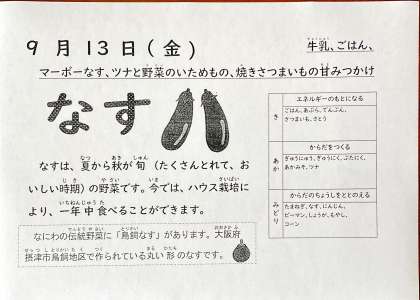 9月13日(金)
牛乳、ごはん、
マーボーなす、ツナと野菜のいためもの、焼きさつまいもの甘みつかけ
なす
なすは、夏から秋が旬(たくさんとれて、お
いしい時期)の野菜です。今では、ハウス栽培に
より、一年中食べることができます。
なにわの伝統野菜に「鳥飼なす」があります。大阪府
摂津市鳥飼地区で作られている丸い形のなすです。
き
エネルギーのもとになる
ごはん、あぶら、でんぷん、
さつまいも、さとう
あか
からだをつくる
ぎゅうにゅう、ぎゅうにく、ぶたにく、
あかみそ、ツナ
みどり
からだのちょうしをととのえる
たまねぎ、なす、にんじん、
ピーマン、しょうが、もやし、
コーン